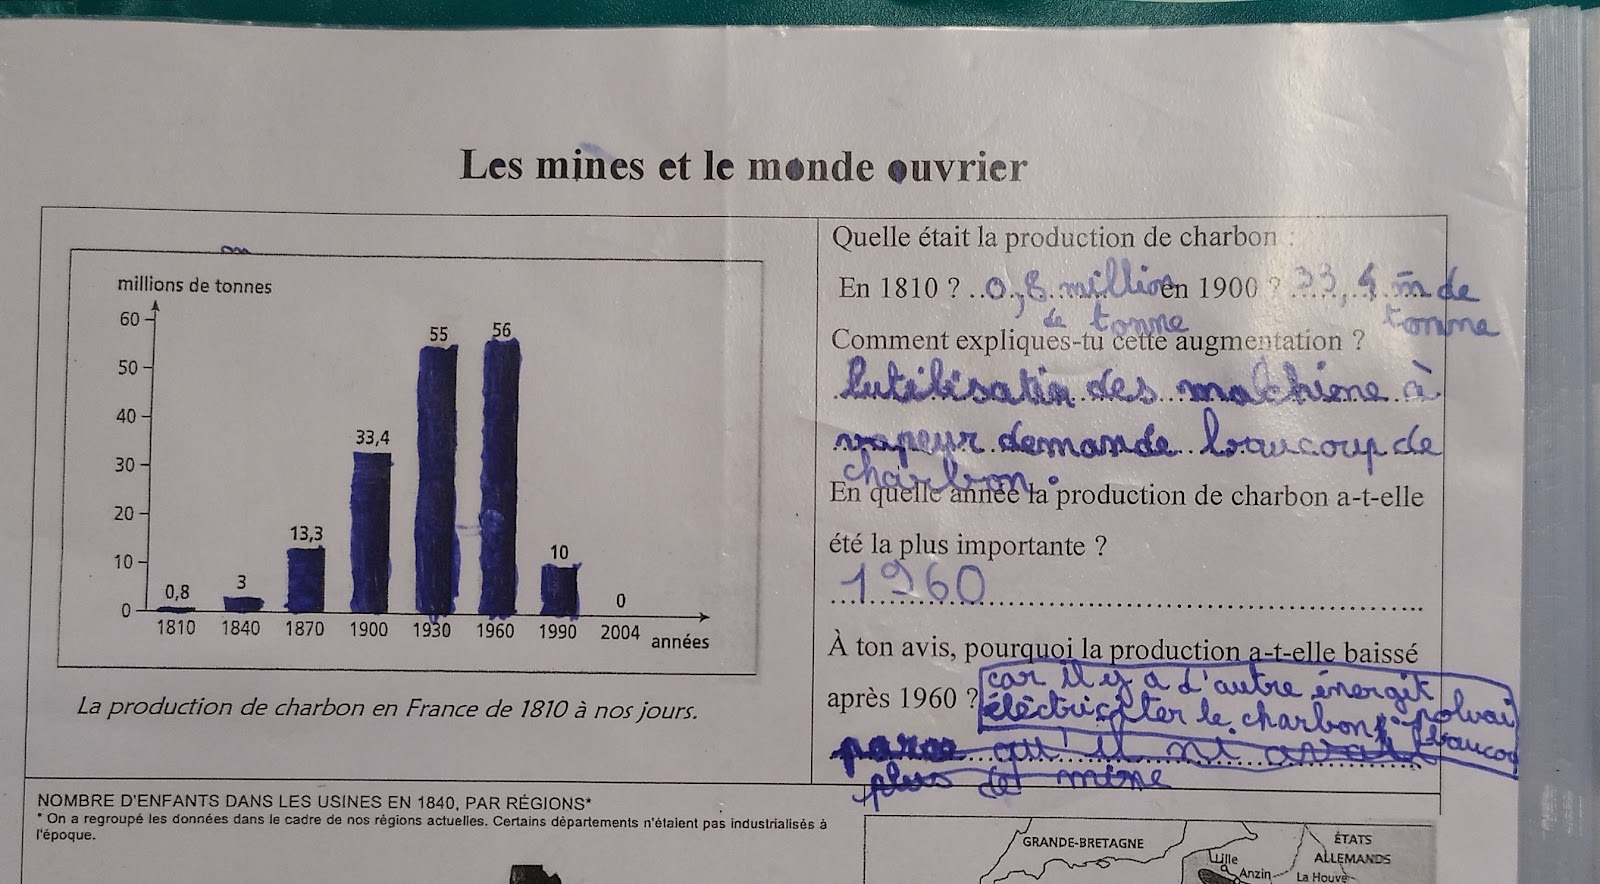 Les mines et le monde ouvrier
millions de tonnes
60
50
40
30
20
10
0
0,8
3
13,3
33,4
55
56
10
0
1810 1840 1870 1900 1930 1960 1990 2004 années
La production de charbon en France de 1810 à nos jours.
Quelle était la production de charbon :
En 1810 ? 0,8 million en 1900 ? 33,4 m de
de tonne tonne
Comment expliques-tu cette augmentation ?
lutilisation des machine à
vapeur demande beaucoup de
charbon.
En quelle année la production de charbon a-t-elle
été la plus importante ?
1960
À ton avis, pourquoi la production a-t-elle baissé
après 1960 ?
car il y a d'autre
le charbon polvai
beaucou
parce qu'il
plus de mine
NOMBRE D'ENFANTS DANS LES USINES EN 1840, PAR RÉGIONS*
* On a regroupé les données dans le cadre de nos régions actuelles. Certains départements n'étaient pas industrialisés à
l'époque.
GRANDE-BRETAGNE
ÉTATS
ALLEMANDS
Lille
Anzin
La Houve